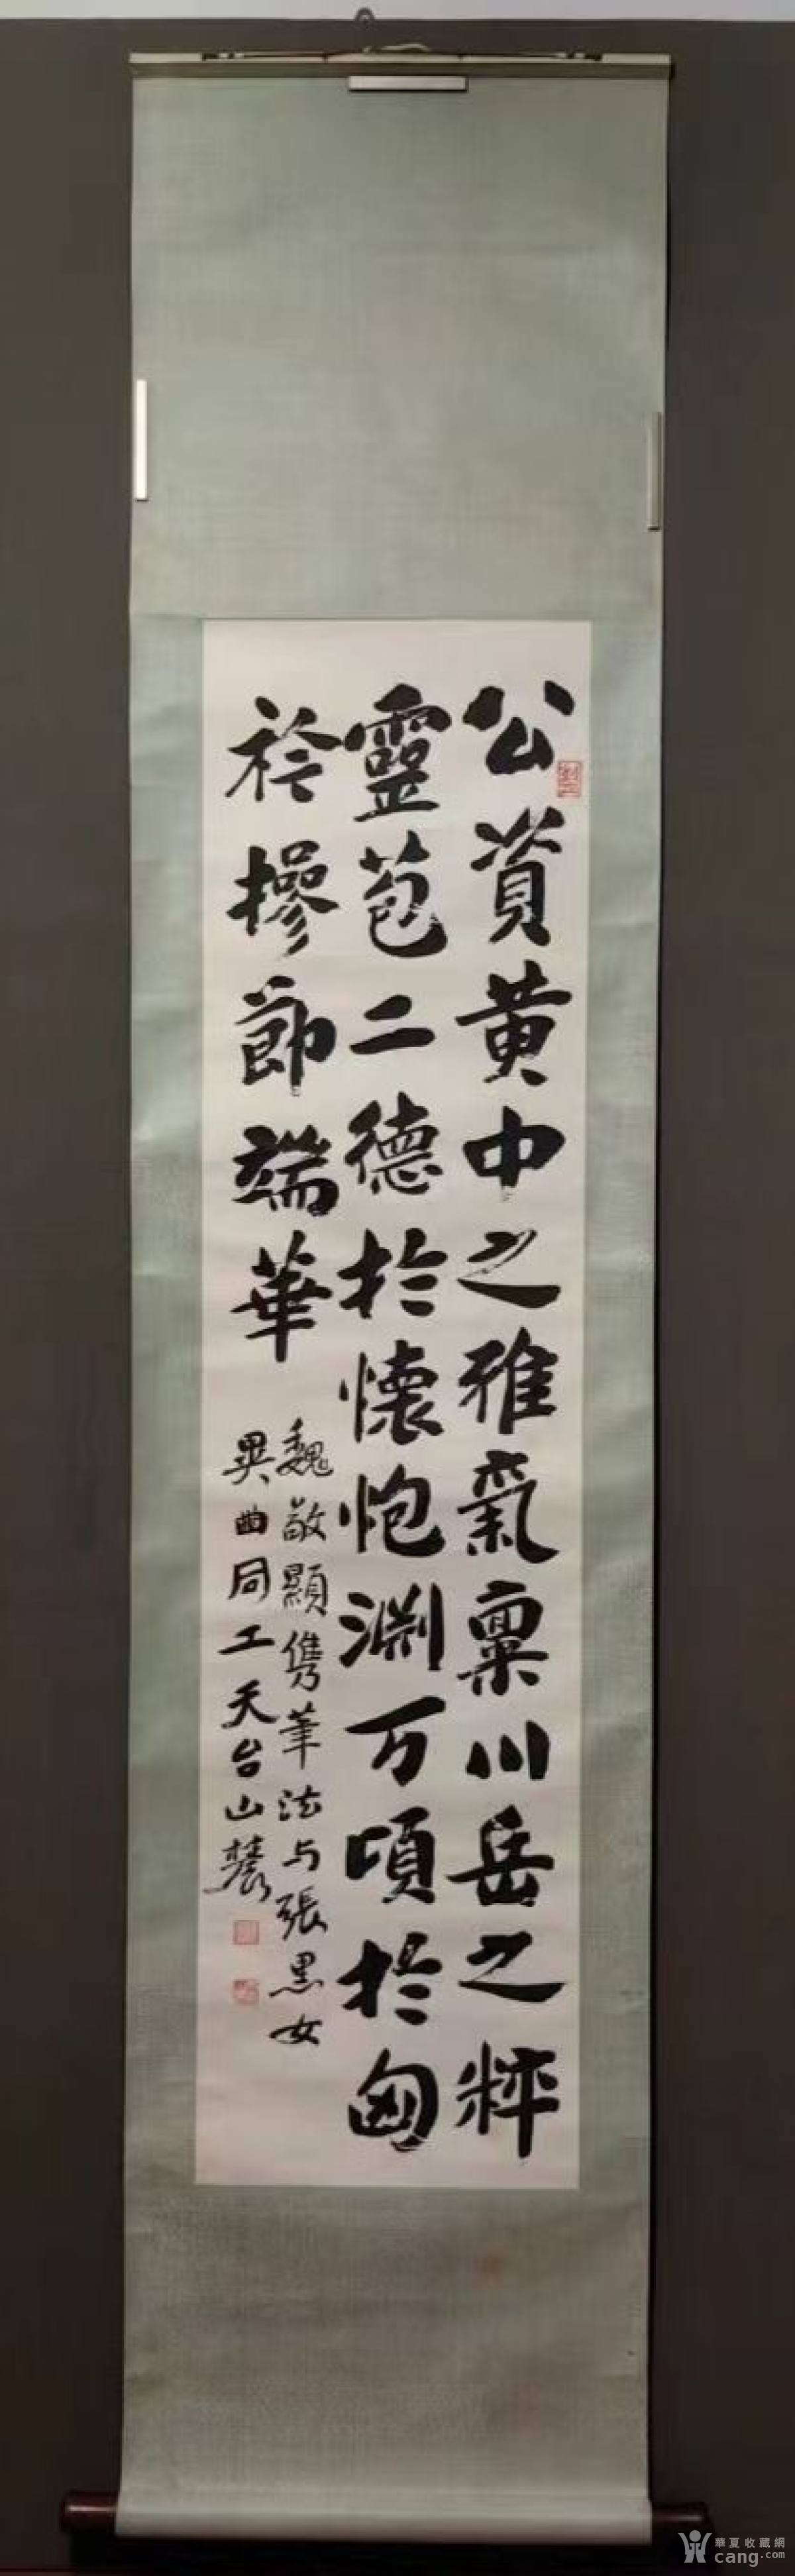 公資黄中之雅氣禀川岳之粹
靈苞二德於懷抱渊万頃於匈
衿操節端華
魏敬顯儁筆法与張黑女
異曲同工天台山農
華夏收藏網
cang.com